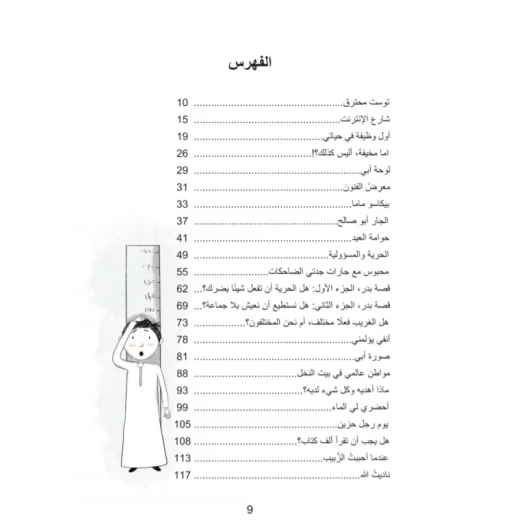 الفهرس
توست محترق.......................................10
شارع الإنترنت.......................................15
أول وظيفة في حياتي.......................................19
اما مخيفة، أليس كذلك؟!.......................................26
لوحة أبي.......................................29
معرض الفنون.......................................31
بيكاسو ماما.......................................33
الجار أبو صالح.......................................37
حوامة العيد.......................................41
الحرية والمسؤولية.......................................49
محبوس مع جارات جدتي الضاحكات.......................................55
قصة بدر، الجزء الأول: هل الحرية أن تفعل شيئًا يضرك؟...62
قصة بدر، الجزء الثاني: هل نستطيع أن نعيش بلا جماعة؟...69
هل الغريب فعلًا مختلف، أم نحن المختلفون؟.......................................73
أنفي يؤلمني.......................................78
صورة أبي.......................................81
مواطن عالمي في بيت النخل.......................................88
ماذا أهديه وكل شيء لديه؟.......................................93
أحضري لي الماء.......................................99
يوم رجل حزين.......................................105
هل يجب أن تقرأ ألف كتاب؟.......................................108
عندما أحببتُ الزَّبيب.......................................113
ناديتُ الله.......................................117
9